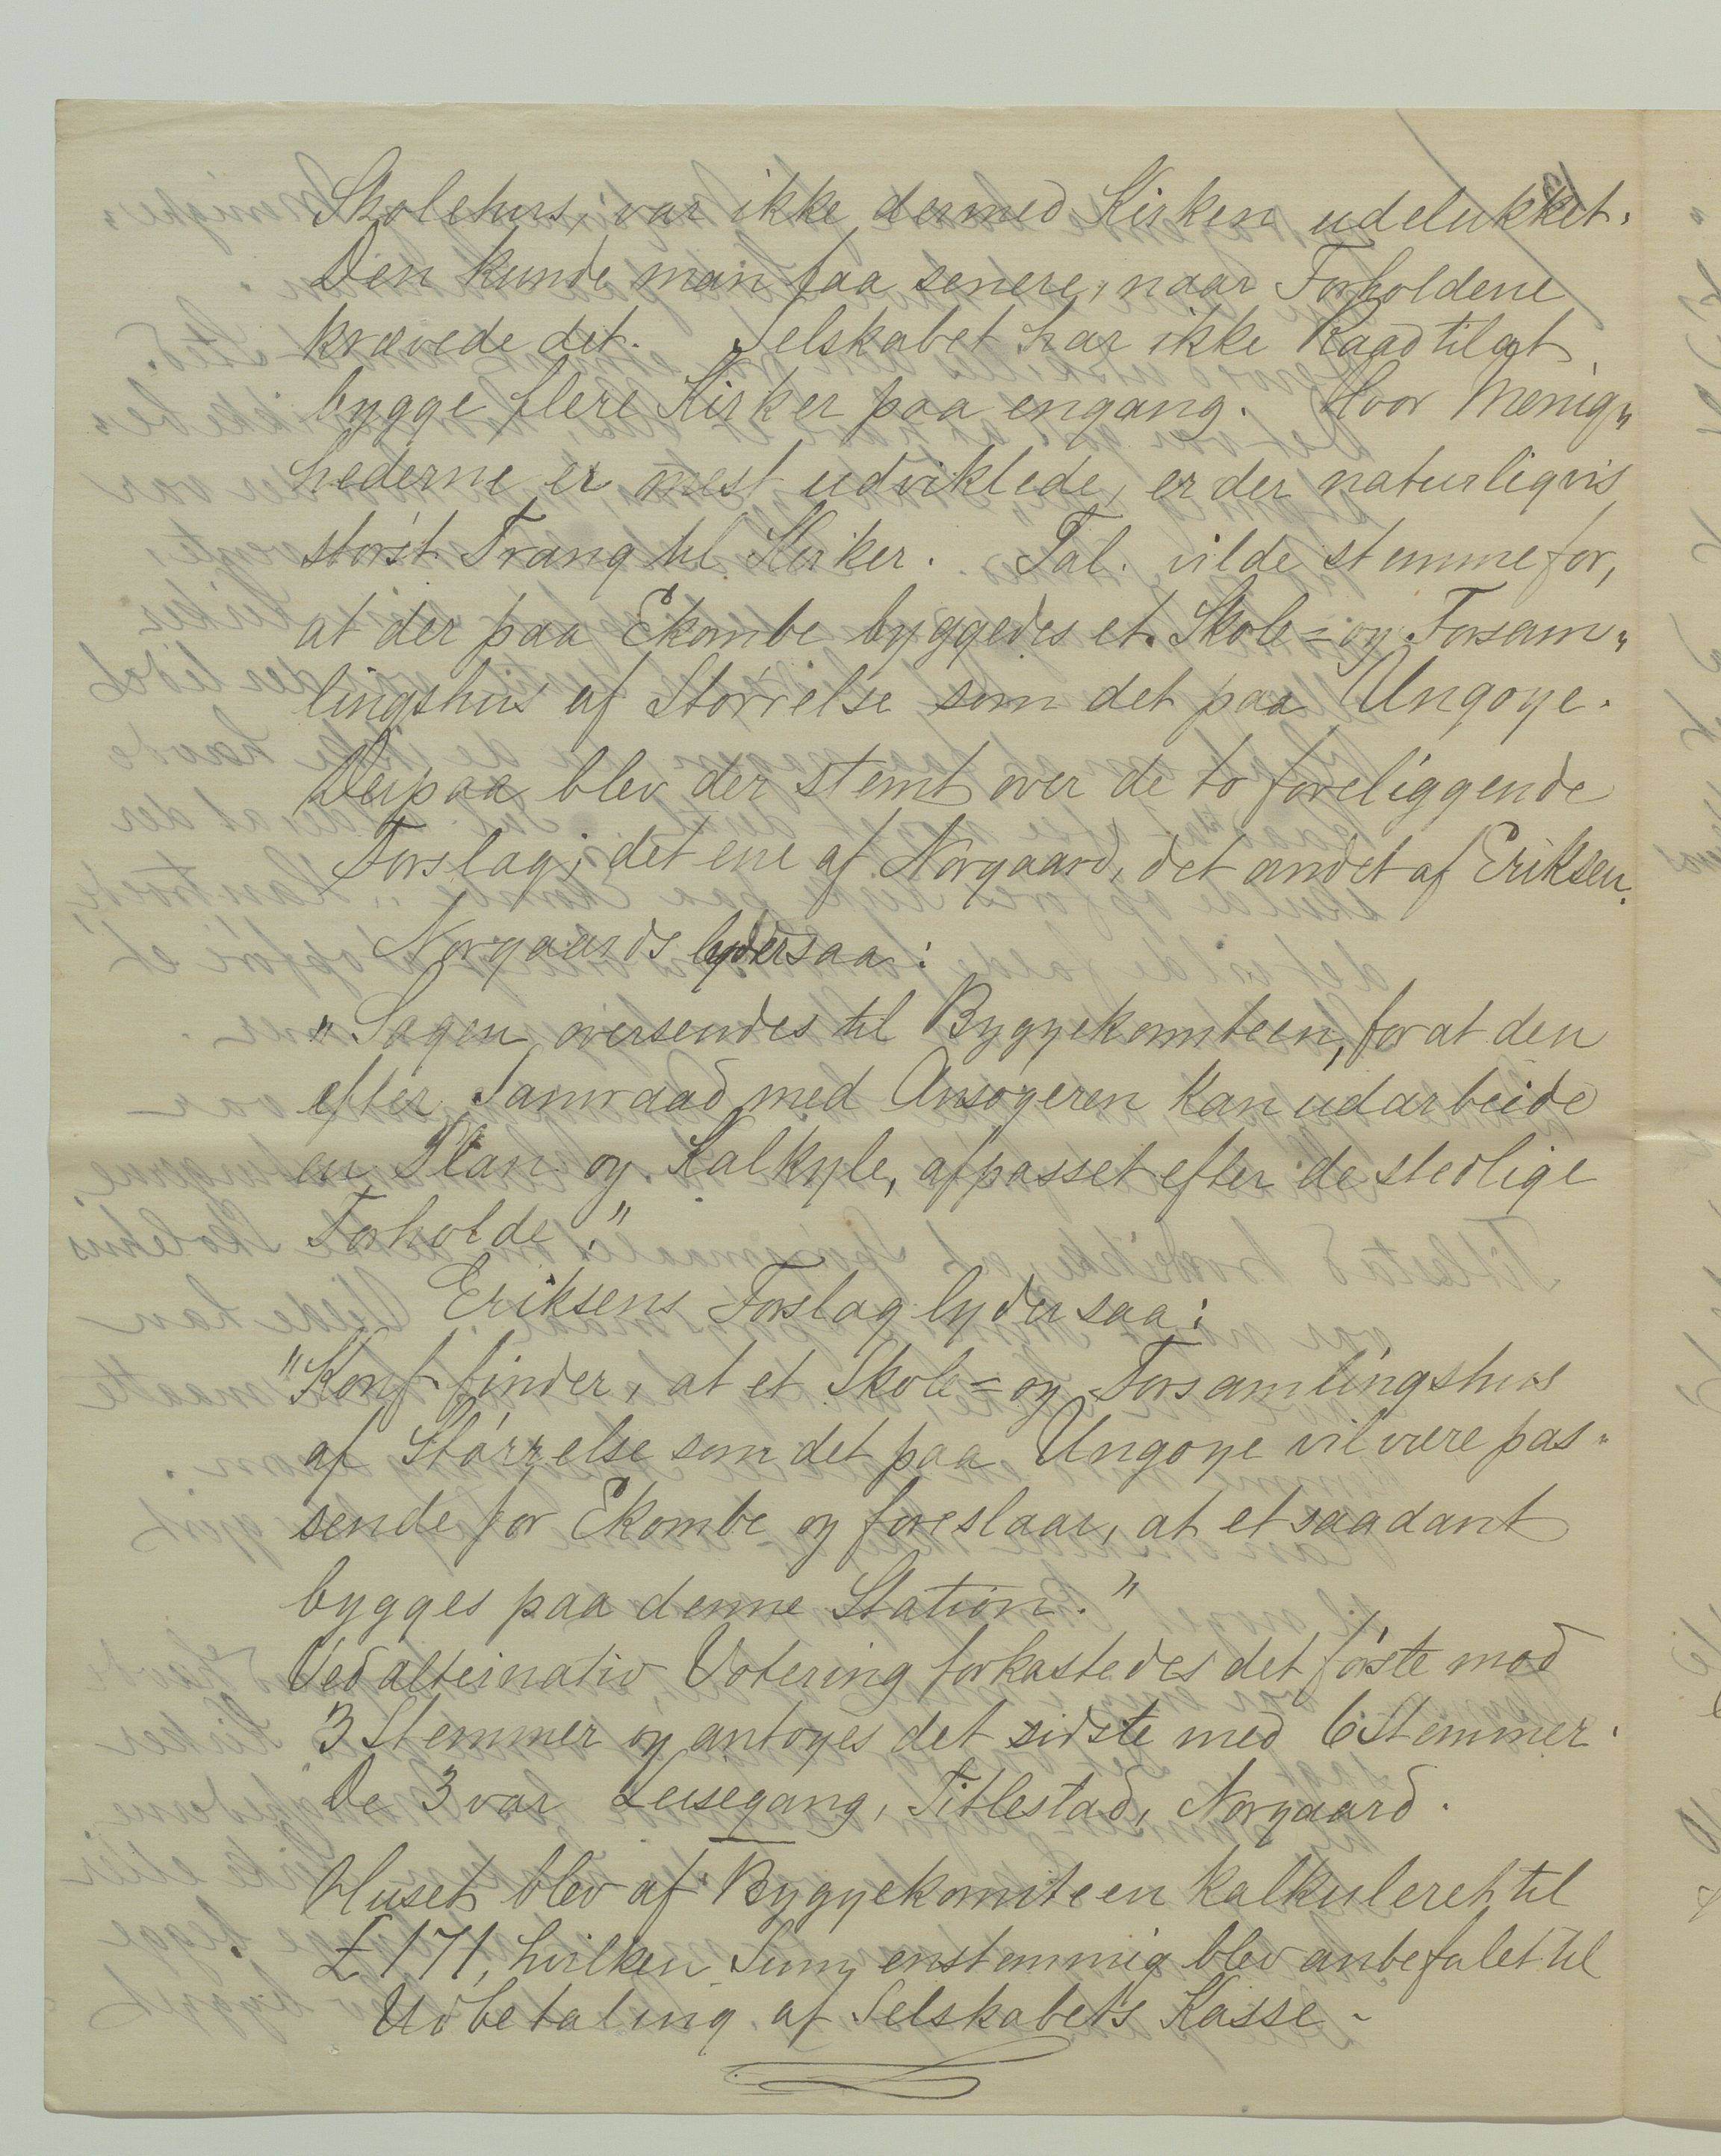 Skolehus, var ikke dermed Kirken udelukket.
Den kunde man faa senere, naar Forholdene
krævede det. Selskabet har ikke Raad til at
bygge flere Kirker paa engang. Hvor Menig„
hederne er mest udviklede, er der naturligvis
størst Trang til Kirker. Tal. vilde stemme for,
at der paa Ekombe byggedes et Skole= og Forsam„
lingshus af Størrelse som det paa Ungoye.
Derpaa blev der stemt over de to foreliggende
Forslag; det ene af Norgaard, det andet af Eriksen.
Norgaards lyder saa:
"Sagen oversendes til Byggekomiteen, for at den
efter Samraad med Ansøgeren kan udarbeide
en Plan og Kalkyle, afpasset efter de stedlige
Forholde."
Eriksens Forslag lyder saa:
"Konf. finder, at et Skole= og Forsamlingshus
af Størrelse som det paa Ungoye vil være pas„
sende for Ekombe og foreslaar, at et saadant
bygges paa denne Station."
Ved alternativ Votering forkastedes det første mod
3 Stemmer og antoges det sidste med 6 Stemmer.
De 3 var Leisegang, Titlestad, Norgaard.
Huset blev af Byggekomiteen kalkuleret til
£ 171, hvilken Sum enstemmig blev anbefalet til
Udbetaling af Selskabets Kasse -